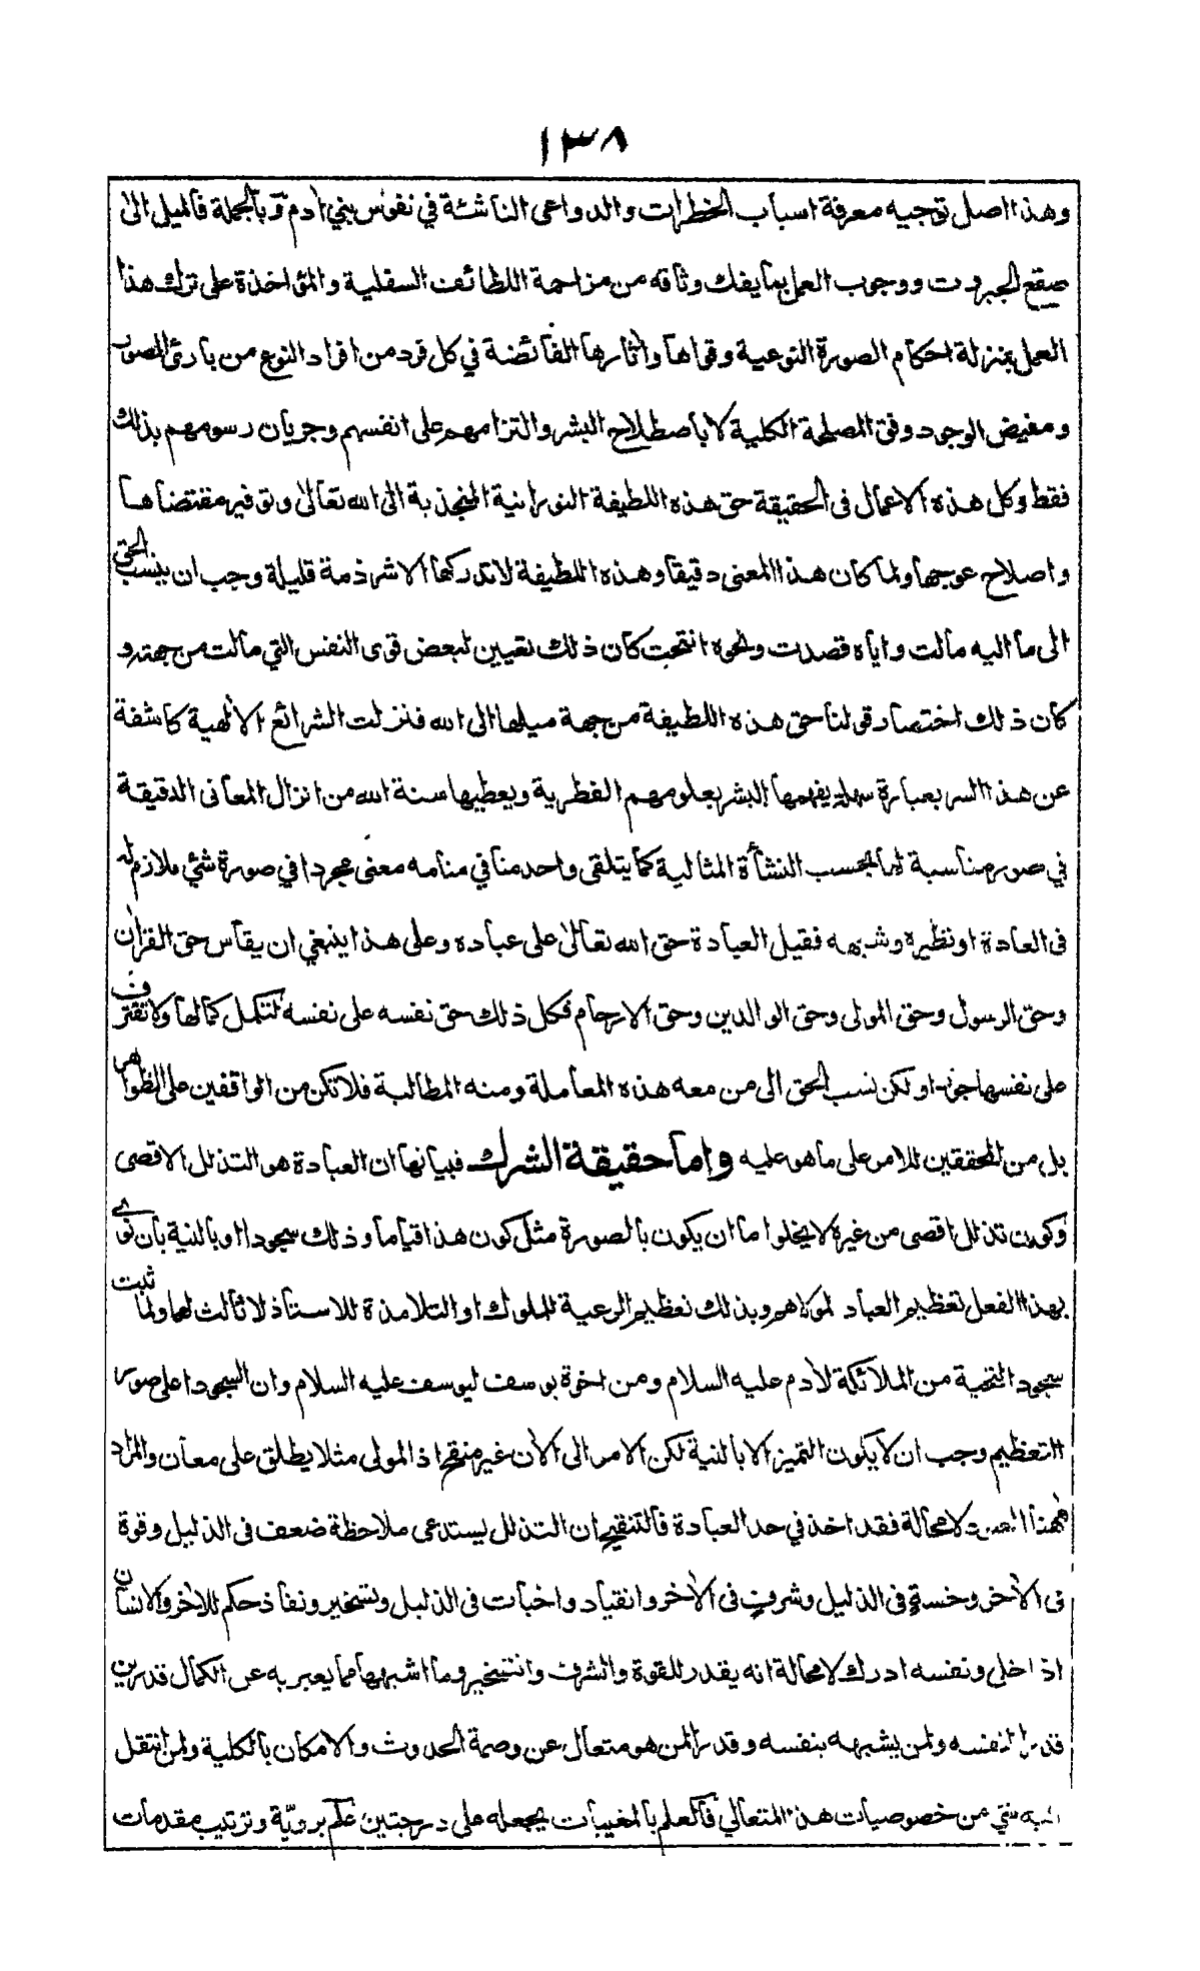 ١٣٨
وهذا اصل توجيه معرفة اسباب الخطرات والدواعى الناشئة في نفوس بني ادم وبالجملة فالميل الى
صقع الجبروت ووجوب العمل بما يفك وثاقه من مزاحمة اللطائف السفلية والمؤاخذة على ترك هذا
العمل بمنزلة احكام الصورة النوعية وقواها واثارها الفائضة في كل فرد من افراد النوع من بارئ الصور
ومفيض الوجود وفق المصلحة الكلية لا باصطلاح البشر والتزامهم على انفسهم وجريان رسومهم بذلك
فقط وكل هذه الاعمال فى الحقيقة حق هذه اللطيفة النورانية المنجذبة الى الله تعالى وتوفير مقتضاها
واصلاح عوجها ولما كان هذا المعنى دقيقا وهذه اللطيفة لا تدركها الا شرذمة قليلة وجب ان ينسب الحق
الى ما اليه مالت واياه قصدت ونحوه انتحت كان ذلك تعيين لبعض قوى النفس التي مالت من جهته و
كان ذلك اختصار قولنا حق هذه اللطيفة من جهة ميلها الى الله فنزلت الشرائع الالهية كاشفة
عن هذا السر بعبارة سهلة يفهمها البشر بعلومهم الفطرية ويعطيها سنة الله من انزال المعانى الدقيقة
في صور مناسبة لها بحسب النشأة المثالية كما يتلقى واحد منا في منامه معنى مجردا في صورة شئ ملازم له
فى العادة او نظيره وشبهه فقيل العبادة حق الله تعالى على عباده وعلى هذا ينبغي ان يقاس حق القران
وحق الرسول وحق المولى وحق الوالدين وحق الارحام فكل ذلك حق نفسه على نفسه لتكمل كمالها ولا تقترف
على نفسها جورا ولكن نسب الحق الى من معه هذه المعاملة ومنه المطالبة فلا تكن من الواقفين على الظواهر
بل من المحققين للامر على ما هو عليه واما حقيقة الشرك فبيانها ان العبادة هو التذلل الاقصى
وكون تذلل اقصى من غيره لا يخلوا ما ان يكون بالصورة مثل كون هذا قياما وذلك سجودا او بالنية بان نوى
بهذا الفعل تعظيم العباد لمولاهم وبذلك تعظيم الرعية للملوك او التلامذة للاستاذ لا ثالث لهما ولما ثبت
سجود التحية من الملائكة لادم عليه السلام ومن اخوة يوسف ليوسف عليه السلام وان السجود اعلى صور
التعظيم وجب ان لا يكون التميز الا بالنية لكن الامر الى الان غير منقح اذ المولى مثلا يطلق على معان والمراد
ههنا المعبود لا محالة فقد اخذ في حد العبادة فالتنقيح ان التذلل يستدعى ملاحظة ضعف فى الذليل وقوة
فى الاخر وخسة في الذليل وشرف فى الاخر وانقياد واخبات فى الذليل وتسخير ونفاذ حكم للاخر والانسان
اذا خلى ونفسه ادرك لا محالة انه يقدر للقوة والشرف والتسخير وما اشبهها مما يعبر به عن الكمال قدرين
قدرا لنفسه ولمن يشبهه بنفسه وقدرا لمن هو متعال عن وصمة الحدوث والامكان بالكلية ولمن انتقل
اليه شئ من خصوصيات هذا المتعالي فالعلم بالمغيبات يجعله على درجتين علم بروية وترتيب مقدمات